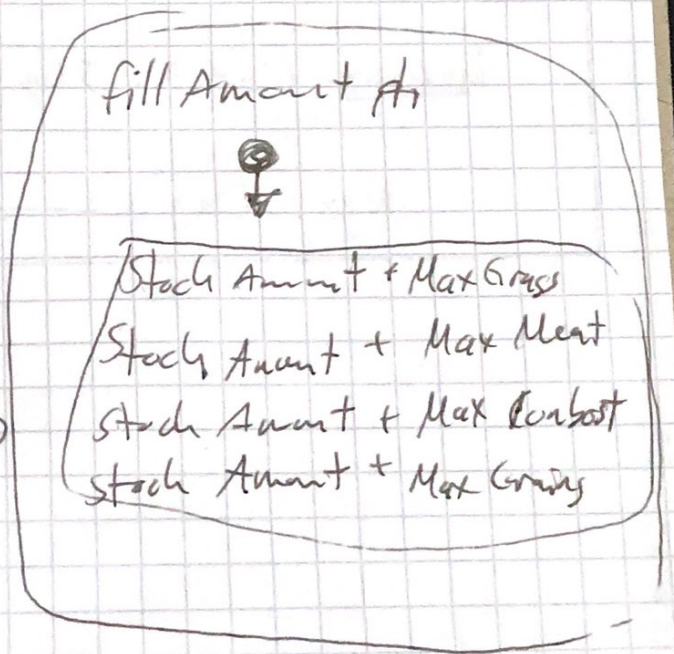 fill Amount
Stock Amount + Max Grass
Stock Amount + Max Meat
Stock Amount + Max
Stock Amount + Max Grains